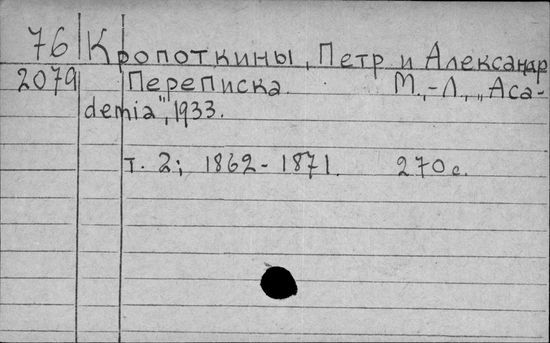 76 Кропоткины, Петр и Александр
2079 Переписка. М.,-Л., „Aca-
demia", 1933.
т. 2; 1862-1871. 270 с.